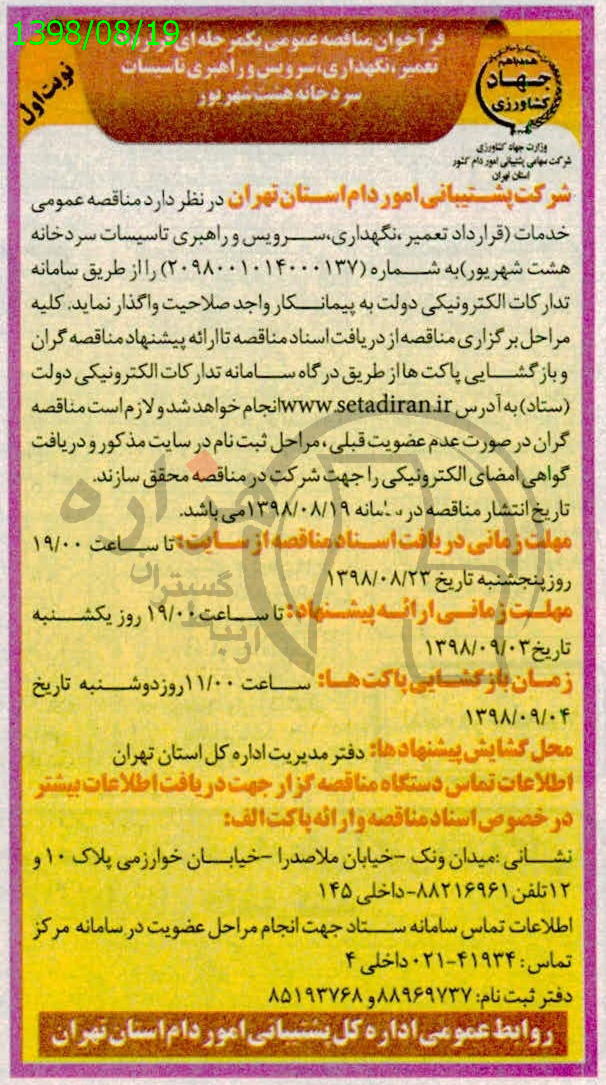 1398/08/19
فراخوان مناقصه عمومی یکمرحله‌ای
تعمیر،نگهداری،سرویس و راهبری تاسیسات
سردخانه هشت شهریور
نوبت اول
جهاد
کشاورزی
وزارت جهاد کشاورزی
شرکت سهامی پشتیبانی امور دام کشور
استان تهران
شرکت پشتیبانی امور دام استان تهران در نظر دارد مناقصه عمومی
خدمات (قرارداد تعمیر ،نگهداری،سرویس و راهبری تاسیسات سردخانه
هشت شهریور)به شماره (۲۰۹۸۰۰۱۰۱۴۰۰۰۱۳۷) را از طریق سامانه
تدارکات الکترونیکی دولت به پیمانکار واجد صلاحیت واگذار نماید. کلیه
مراحل برگزاری مناقصه از دریافت اسناد مناقصه تا ارائه پیشنهاد مناقصه گران
و بازگشایی پاکت ها از طریق درگاه سامانه تدارکات الکترونیکی دولت
(ستاد) به آدرس www.setadiran.ir انجام خواهد شد و لازم است مناقصه
گران در صورت عدم عضویت قبلی ، مراحل ثبت نام در سایت مذکور و دریافت
گواهی امضای الکترونیکی را جهت شرکت در مناقصه محقق سازند.
تاریخ انتشار مناقصه در سامانه ۱۳۹۸/۰۸/۱۹ می باشد.
مهلت زمانی دریافت اسناد مناقصه از سایت: تا ساعت ۱۹/۰۰
روز پنجشنبه تاریخ ۱۳۹۸/۰۸/۲۳
مهلت زمانی ارائه پیشنهاد: تا ساعت ۱۹/۰۰ روز یکشنبه
تاریخ ۱۳۹۸/۰۹/۰۳
زمان بازگشایی پاکت ها: ساعت ۱۱/۰۰ روز دوشنبه تاریخ
۱۳۹۸/۰۹/۰۴
محل گشایش پیشنهادها: دفتر مدیریت اداره کل استان تهران
اطلاعات تماس دستگاه مناقصه گزار جهت دریافت اطلاعات بیشتر
در خصوص اسناد مناقصه و ارائه پاکت الف:
نشانی :میدان ونک -خیابان ملاصدرا -خیابان خوارزمی پلاک ۱۰ و
۱۲ تلفن ۸۸۲۱۶۹۶۱-داخلی ۱۴۵
اطلاعات تماس سامانه ستاد جهت انجام مراحل عضویت در سامانه مرکز
تماس : ۴۱۹۳۴-۰۲۱ داخلی ۴
دفتر ثبت نام: ۸۸۹۶۹۷۳۷ و ۸۵۱۹۳۷۶۸
روابط عمومی اداره کل پشتیبانی امور دام استان تهران
هزاره
گستران